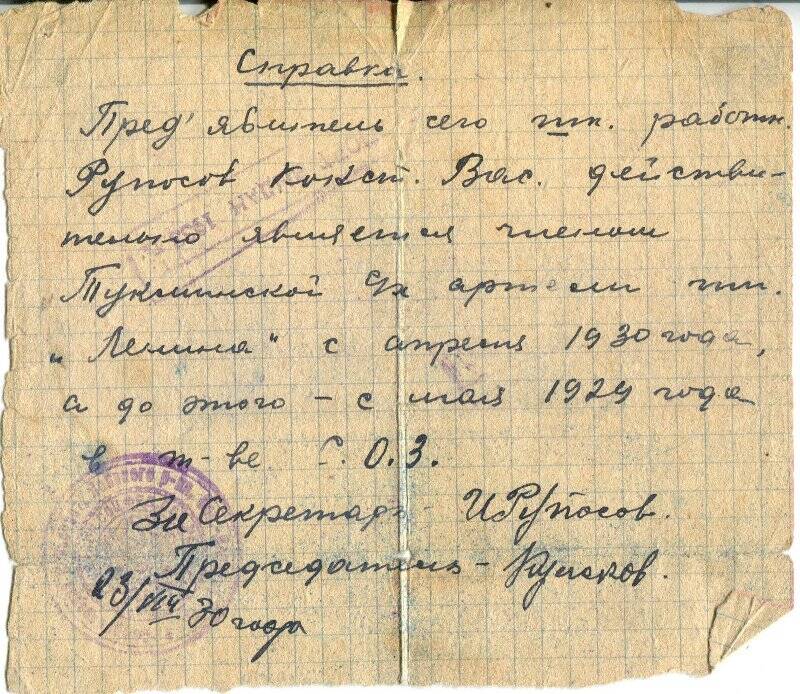 Справка.
Пред'явитель сего шк. работн.
Рупосов Конст. Вас. действи-
тельно является членом
Туксинской с/х артели им.
„Ленина" с апреля 1930 года,
а до этого – с мая 1929 года
в т-ве С.О.З.
За Секретарь – И Рупосов.
Председатель –
23/VIII 30 года